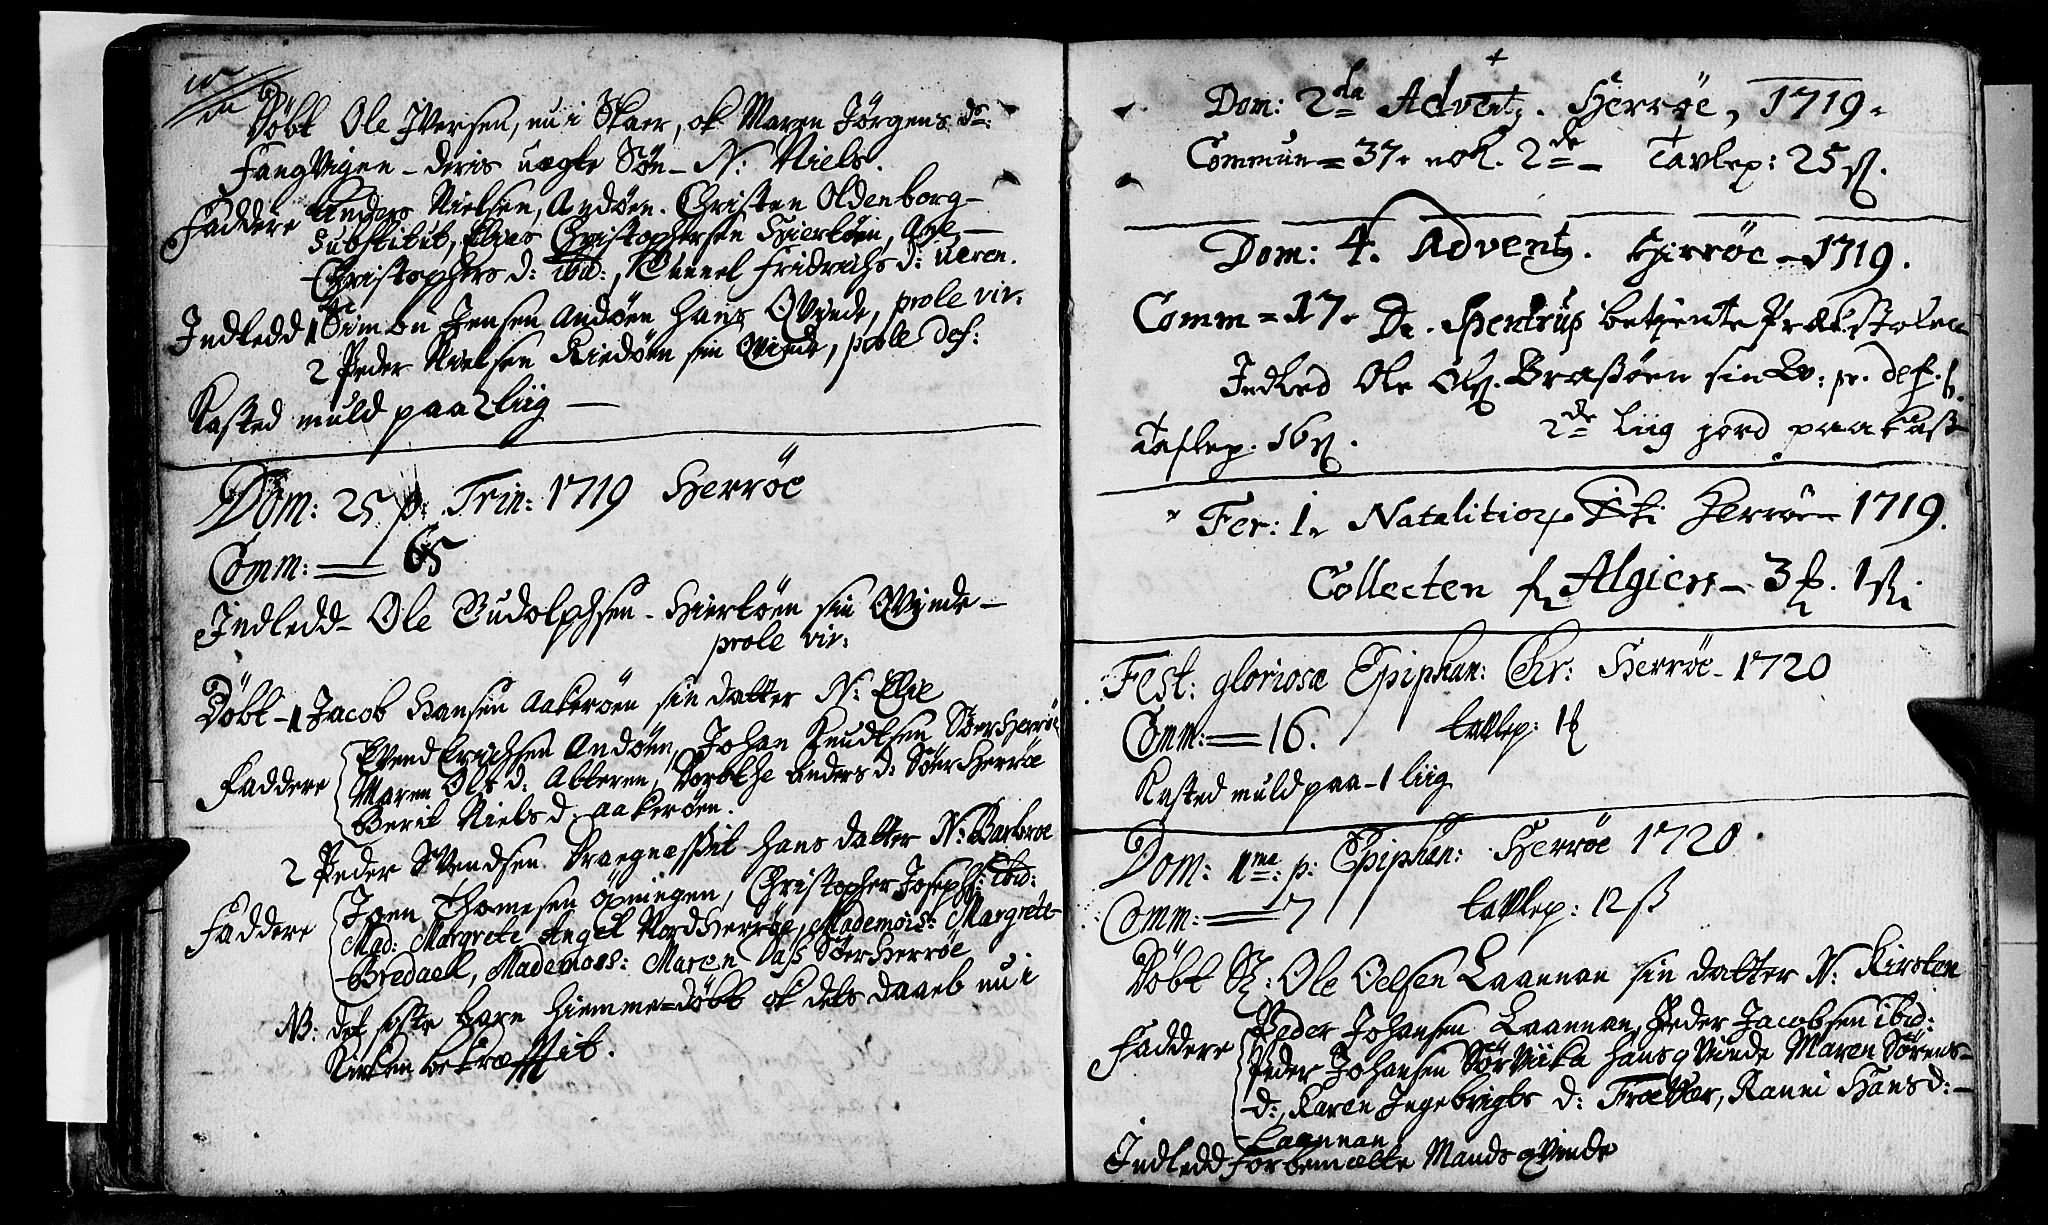 Døbt Ole Iversen, nu i Skaer, ok Maren Jørgens d:
FangVigen - deris uægte Søn - N: Niels.
Faddere Anders Nielsen, Andøen. Christen Oldenborg -
Substitut, Christophersen Hiertøen,
Christophers d: ibid:, Fridrichs d: Veren.
Indledd 1 Simon Jensen Andøen hans QVinde, prole vir:
2 Peder Nielsen Riedøen sin QVinde, prole def:
Kasted muld paa 2 liig —
Dom: 25 p. Trin: 1719 Herrøe
Comm: = 65
Indledd - Ole Rudolphsen - Hiertøen sin QVinde -
prole vir:
Døbt - 1 Jacob Hansen Aakerøen sin datter N: Elie
Faddere Svend Erichsen Andøen, Johan Knudtsen SøerHerrøe
Maren Ols d: Alteren, Dorthe Anders d: SøerHerrøe
Berit Niels d: Aakerøen.
2 Peder SVendsen Kraegnæssit hans datter N: Barbroe
Faddere Joen Thomesen Øxningen, Christopher Josephs: ibid:
Mad: Margrete Angel NordHerrøe, Mademois: Margrete
Bredaell, Mademois: Maren Dass SøerHerrøe
NB: det siste barn hiemme=døbt ok dets daab nu i
Kirken bekræfftit.
Dom: 2da Advent. Herrøe, 1719.
Commun = 37. nok. 2de - Tavlep: 25 ß.
Dom: 4. Advent. Herrøe - 1719.
Comm = 17. Dn. Spentrup betjente Prækstolen
Indled Ole Ols. Braßøen sin Qv: pr. def.
Taflep. 16 ß. 2de Liig jord paakast
Fer: 1. Natalitior Xti Herrøe - 1719.
Collecten f Algiers - 3 . 1 ß.
Fest: gloriosæ Epiphan: Chr: Herrøe - 1720
Comm: = 16. tavlep: 1
Kasted muld paa - 1 liig
Dom: 1ma: p: Epiphan: Herrøe 1720
Comm: = 7 tavlep: 12 ß
Døbt : Ole Oelsen Laannan sin datter N: Kirsten
Faddere Peder Johansen Laannan, Peder Jacobsen ibid:
Peder Johansen SørViika hans qvinde Maren Sørens-
d:, Karen Ingebrigts d: , Ranni Hans d: -
- Laannan
Indledd forbemælte Mands qVinde